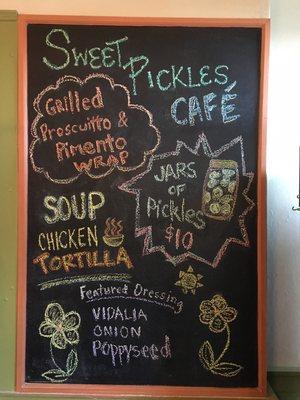 Sweet
Pickles
CAFÉ
Grilled
Proscuitto &
Pimento
WRAP
JARS
OF
Pickles
$10
SOUP
CHICKEN
TORTILLA
Featured Dressing
VIDALIA
ONION
Poppyseed